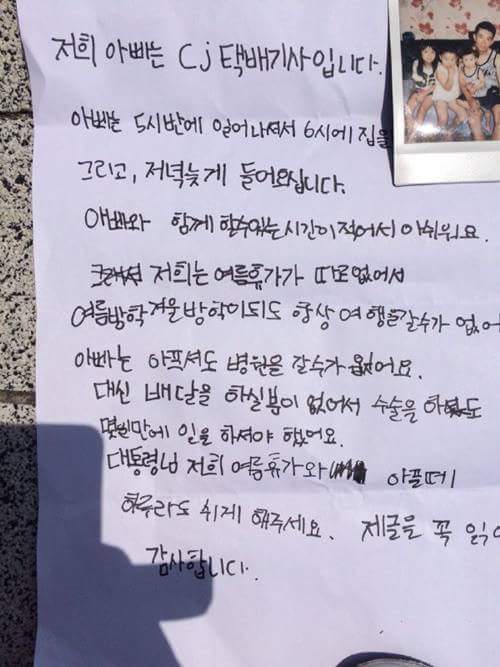 저희 아빠는 Cj 택배기사입니다.
아빠는 5시반에 일어나셔서 6시에 집을
그리고, 저녁늦게 들어오십니다.
아빠와 함께 할수있는 시간이 적어서 아쉬워요.
저희는 여름휴가가 따로없어서
여름방학 겨울방학이되도 항상 여행을갈수가 없어
아빠는 아프셔도 병원을 갈수가 없어요.
대신 배달을 하실분이 없어서 수술을 하셨도
몇일만에 일을 하셔야 했어요.
대통령님 저희 여름휴가와 아플떼
하루라도 쉬게 해주세요. 제글을 꼭 읽어
감사합니다.